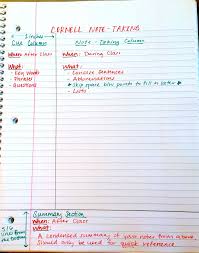 CORNELL NOTE-TAKING
2 inches
Cue Column
Note-Taking Column
When: After Class
When: During Class
What:
What:
- Key Words
- Concise Sentences
- Phrases
- Abbreviations
- Questions
- Skip space btw points to fill in later
- Lists
Summary Section
When: After Class
What:
5/6
lines from
the bottom
A condensed summary of your notes from above.
Should only be used for quick reference.